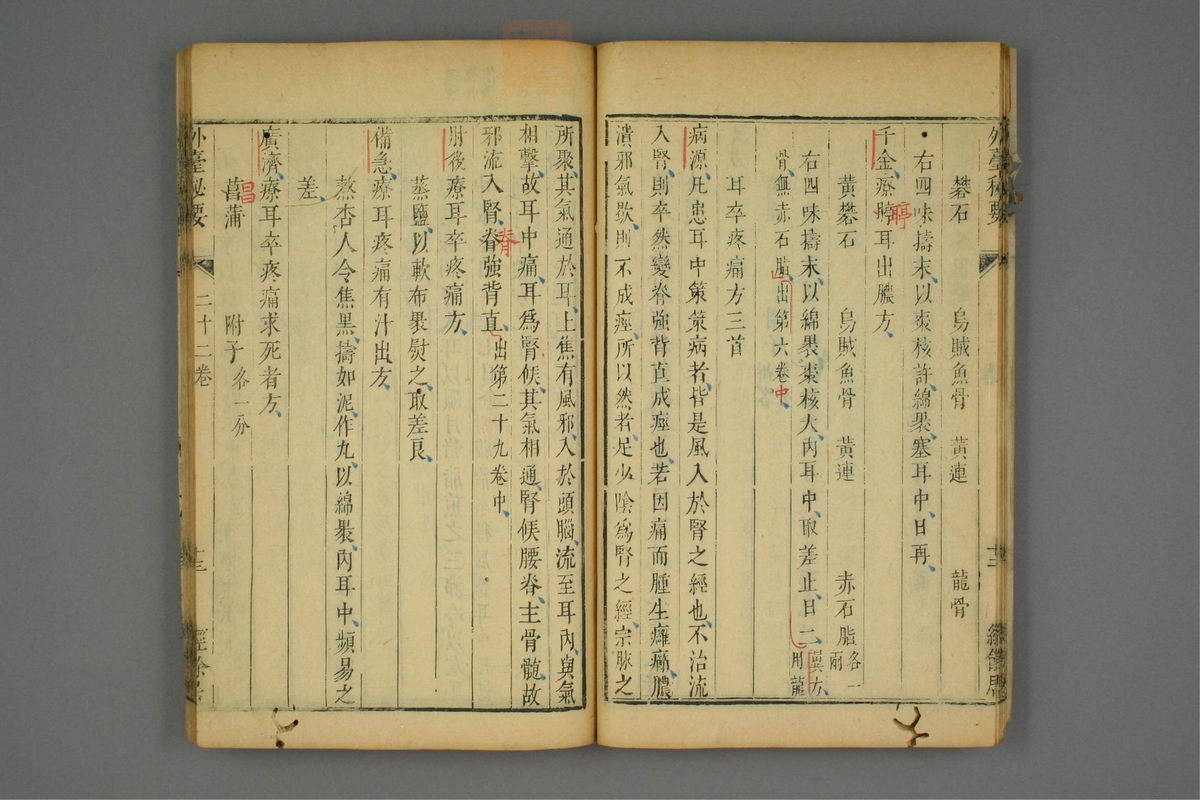 礬石 烏賊魚骨 黃連 龍骨
右四味擣末以棗核許綿褁塞耳中日再
千金療聤耳出膿方
黃礬石 烏賊魚骨 黃連 赤石脂各一兩
右四味擣末以綿褁棗核大內耳中取差止日二巽方用龍
骨無赤石脂出第六卷中
耳卒疼痛方三首
病源凡患耳中策策病者皆是風入於腎之經也不治流
入腎則卒然變脊強背直成痙也若因痛而腫生癰癤膿
潰邪氣歇則不成痙所以然者足少陰爲腎之經宗脉之
所聚其氣通於耳上焦有風邪入於頭腦流至耳內與氣
相擊故耳中痛耳爲腎候其氣相通腎候腰脊主骨髓故
邪流入腎脊強背直出第二十九卷中
肘後療耳卒疼痛方
蒸鹽以軟布褁熨之取差良
備急療耳疼痛有汁出方
熬杏人令焦黑擣如泥作丸以綿褁內耳中頻易之
差
廣濟療耳卒疼痛求死者方
菖蒲 附子各一分
外臺秘要 二十二卷 十三 經餘居